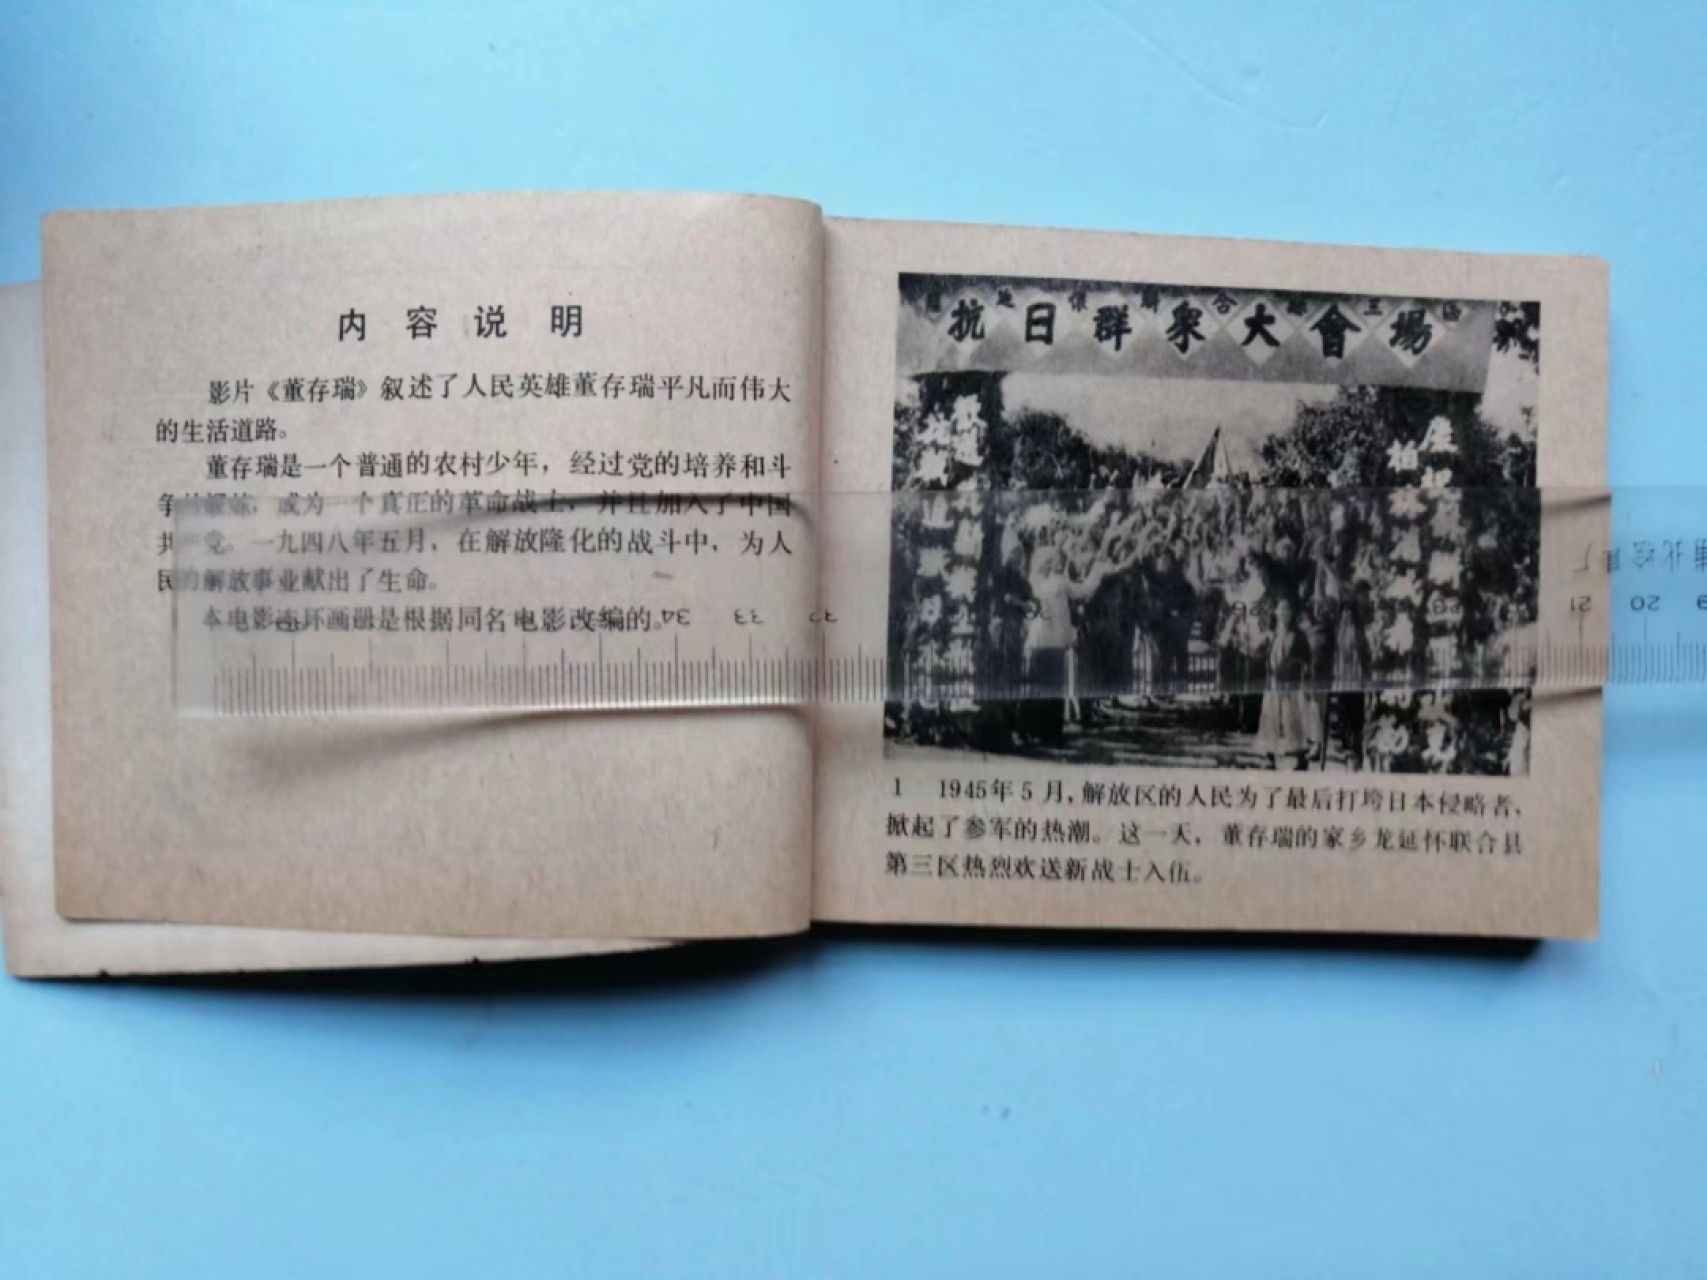 内容说明
影片《董存瑞》叙述了人民英雄董存瑞平凡而伟大
的生活道路。
董存瑞是一个普通的农村少年，经过党的培养和斗
争的锻炼，成为一个真正的革命战士，并且加入了中国
共产党。一九四八年五月，在解放隆化的战斗中，为人
民的解放事业献出了生命。
本电影连环画册是根据同名电影改编的。
延懷聯合縣三區
抗日群衆大會場
1 1945年5月，解放区的人民为了最后打垮日本侵略者、
掀起了参军的热潮。这一天，董存瑞的家乡龙延怀联合县
第三区热烈欢送新战士入伍。
34 33
21 20